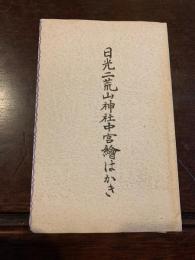 日光二荒山神社中宮繪はがき